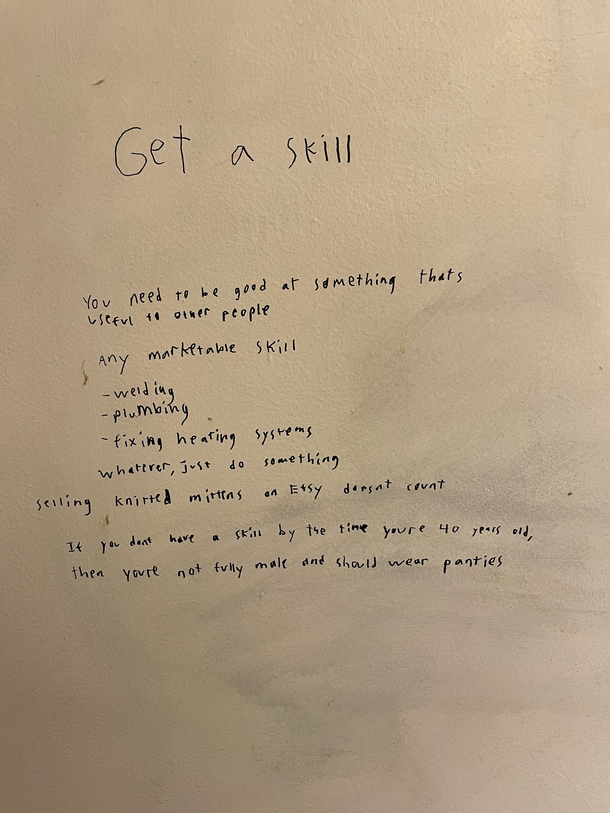 Get a skill
You need to be good at something thats
useful to other people
Any marketable skill
-welding
-plumbing
-fixing heating systems
whatever, just do something
selling knitted mittens on Etsy doesnt count
If you dont have a skill by the time youre 40 years old,
then youre not fully male and should wear panties